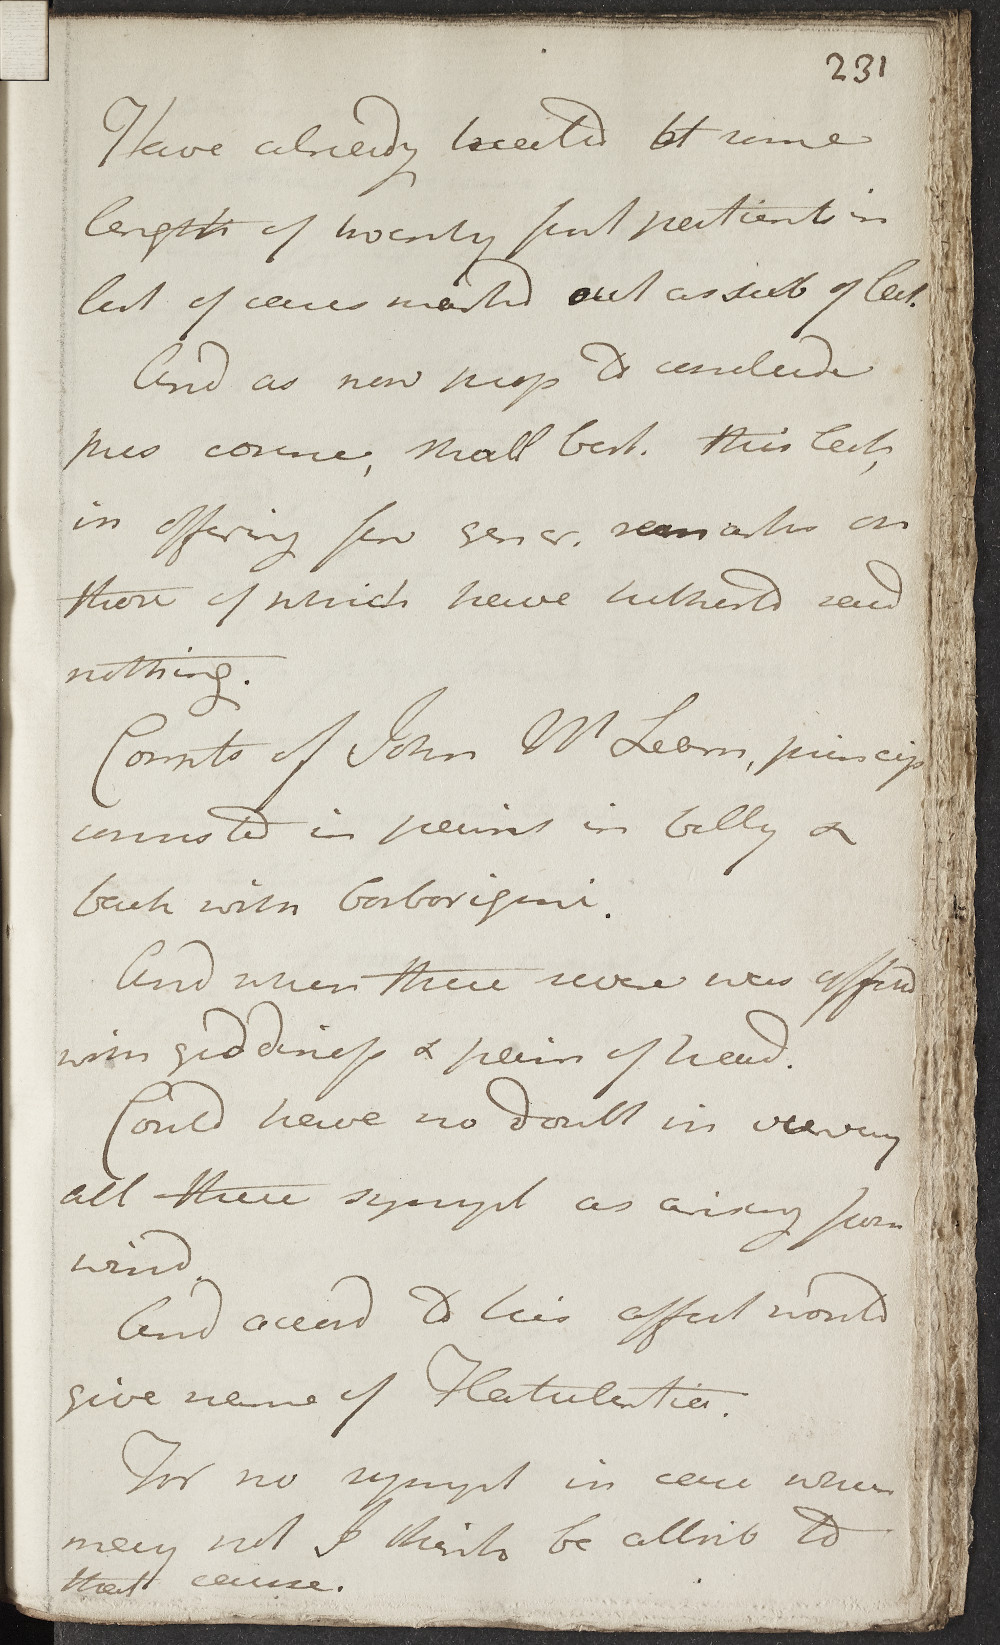 231
Have already treated at some
length of twenty first patients in
list of cases marked out as sub of lect.
And as now prop to conclude
pres course, shall best. this lect,
in offering few gener. remarks on
those of which have hitherto said
nothing.
Compts of John Mc Learn, princip
consisted in pains in belly &
back with borborigmi.
And when these severe was affected
with giddiness & pain of head.
Could have no doubt in viewing
all these sympt as arising from
wind.
And accord to his affect would
give name of Flatulentia.
For no sympt in case when
may not I think be attrib to
that cause.